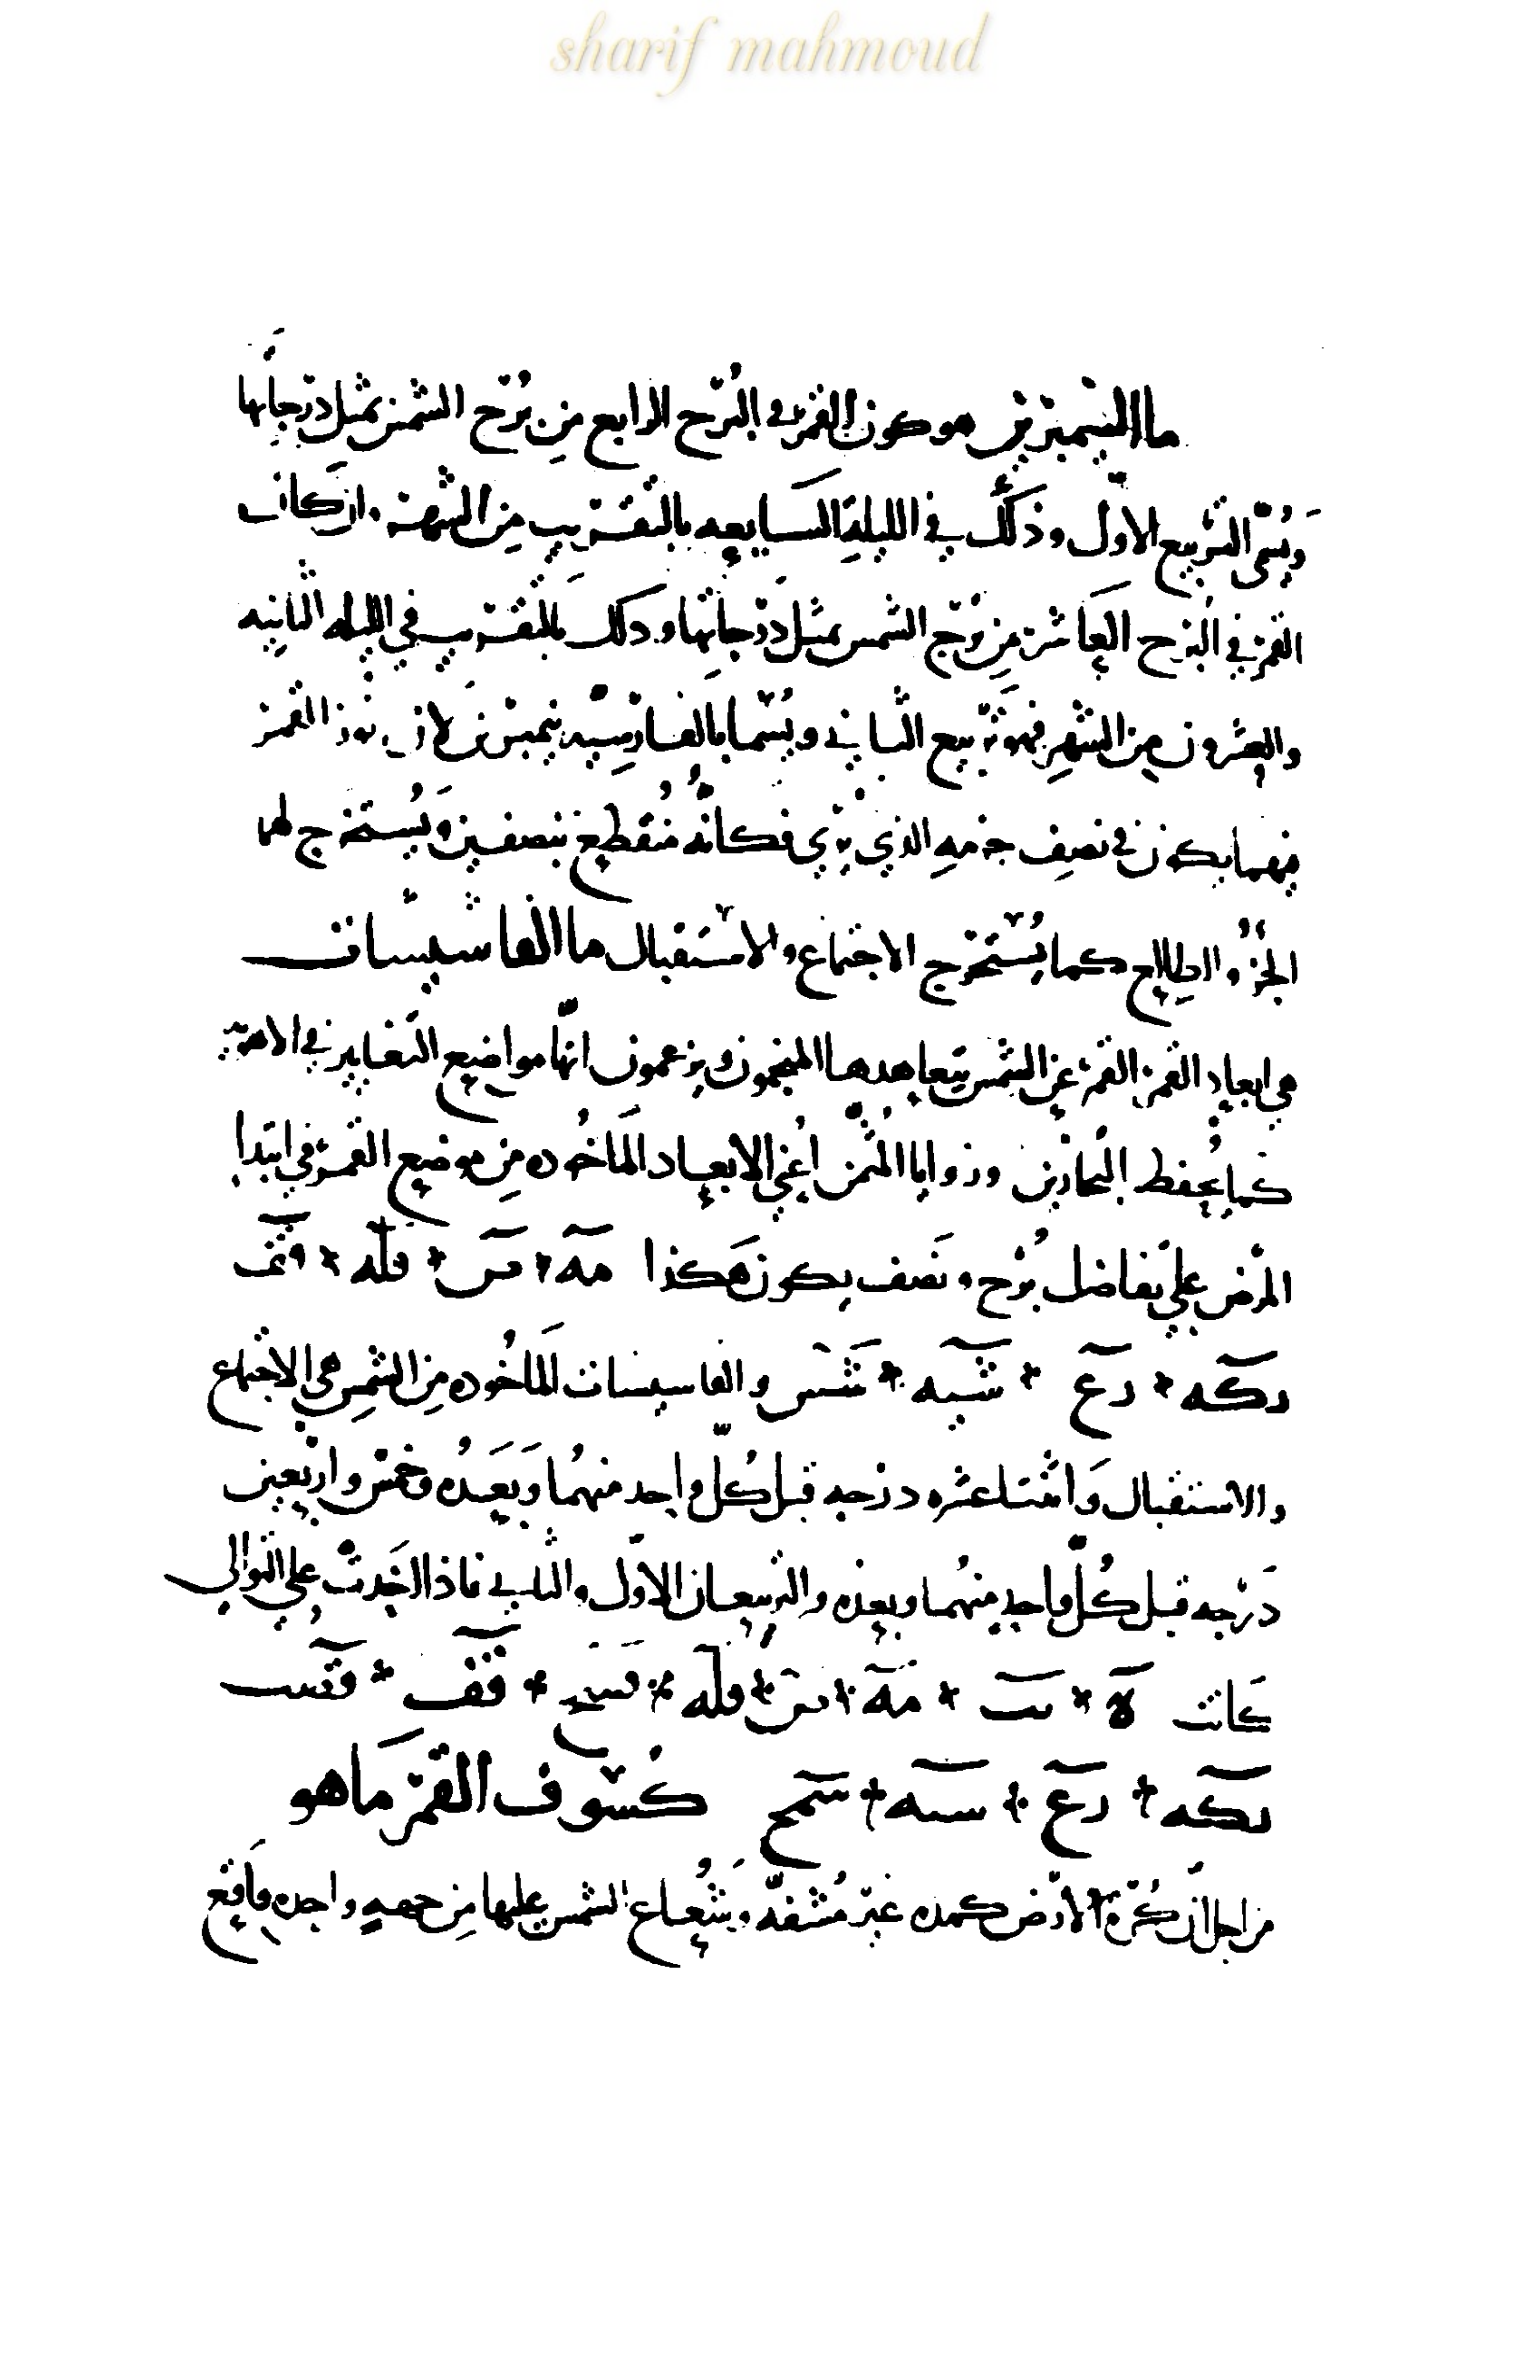 sharif mahmoud
ما النيمبرين هو كون القمر في البرج الرابع من برج الشمس بمثل درجاتها
وَيُسمّى التربيع الاوّل وذلك في الليلةِ السابعه بالتقريب من الشهر وان كان
القمر في البُرج العاشر من بُرج الشمس بمثل درجاتها وذلك بالتقريب في الليله الثانيه
والعشرون من الشهر فهو تربيع الثاني ويُسَمّا بالفارسيّه نيمبرين لان نور القمر
فيهما يكون في نصف جرمهِ الذي يرى فكانهُ مُنقطع بنصفين وَيُستخرج لهما
الجُزؤ والطالع كما يُستخرج الاجتماع والاستقبال ما الفاسيسات
هي ابعاد القمر القمر عن الشمس يتعاهدها المنجمون ويزعمون انّها مواضع التغايير في الاهوية
كما يُحفظ البحارين وزوايا المُثمن اعني الابعاد المَاخُوذه من موضع القمر في ابتدا
المرض على تفاضل بُرج ونصف يكون هَكذا مه * ص * قله * قف
ركه * رع * شيه * شس والفاسيسات المَاخُوذه من الشمس هي الاجتماع
والاستقبال وَاثنتا عشره درجه قبل كُلّ واحد منهُما وَبَعَدُه وخمس واربعين
دَرجه قبل كُلّ واحدٍ منهُما وبعده والتربيعان الاوّل والثاني فاذا اخَذتْ على التوالي
كَانت ه * يب * مه * ص * قله * قسح * قف * قصب
ركه * رع * سيه * سمح كُسوف القمر مَا هو
من اجل انّ كُرةَ الارض كمده غير مُشفّه وَشُعاع الشمس عليها من جههٍ واحده فاقع